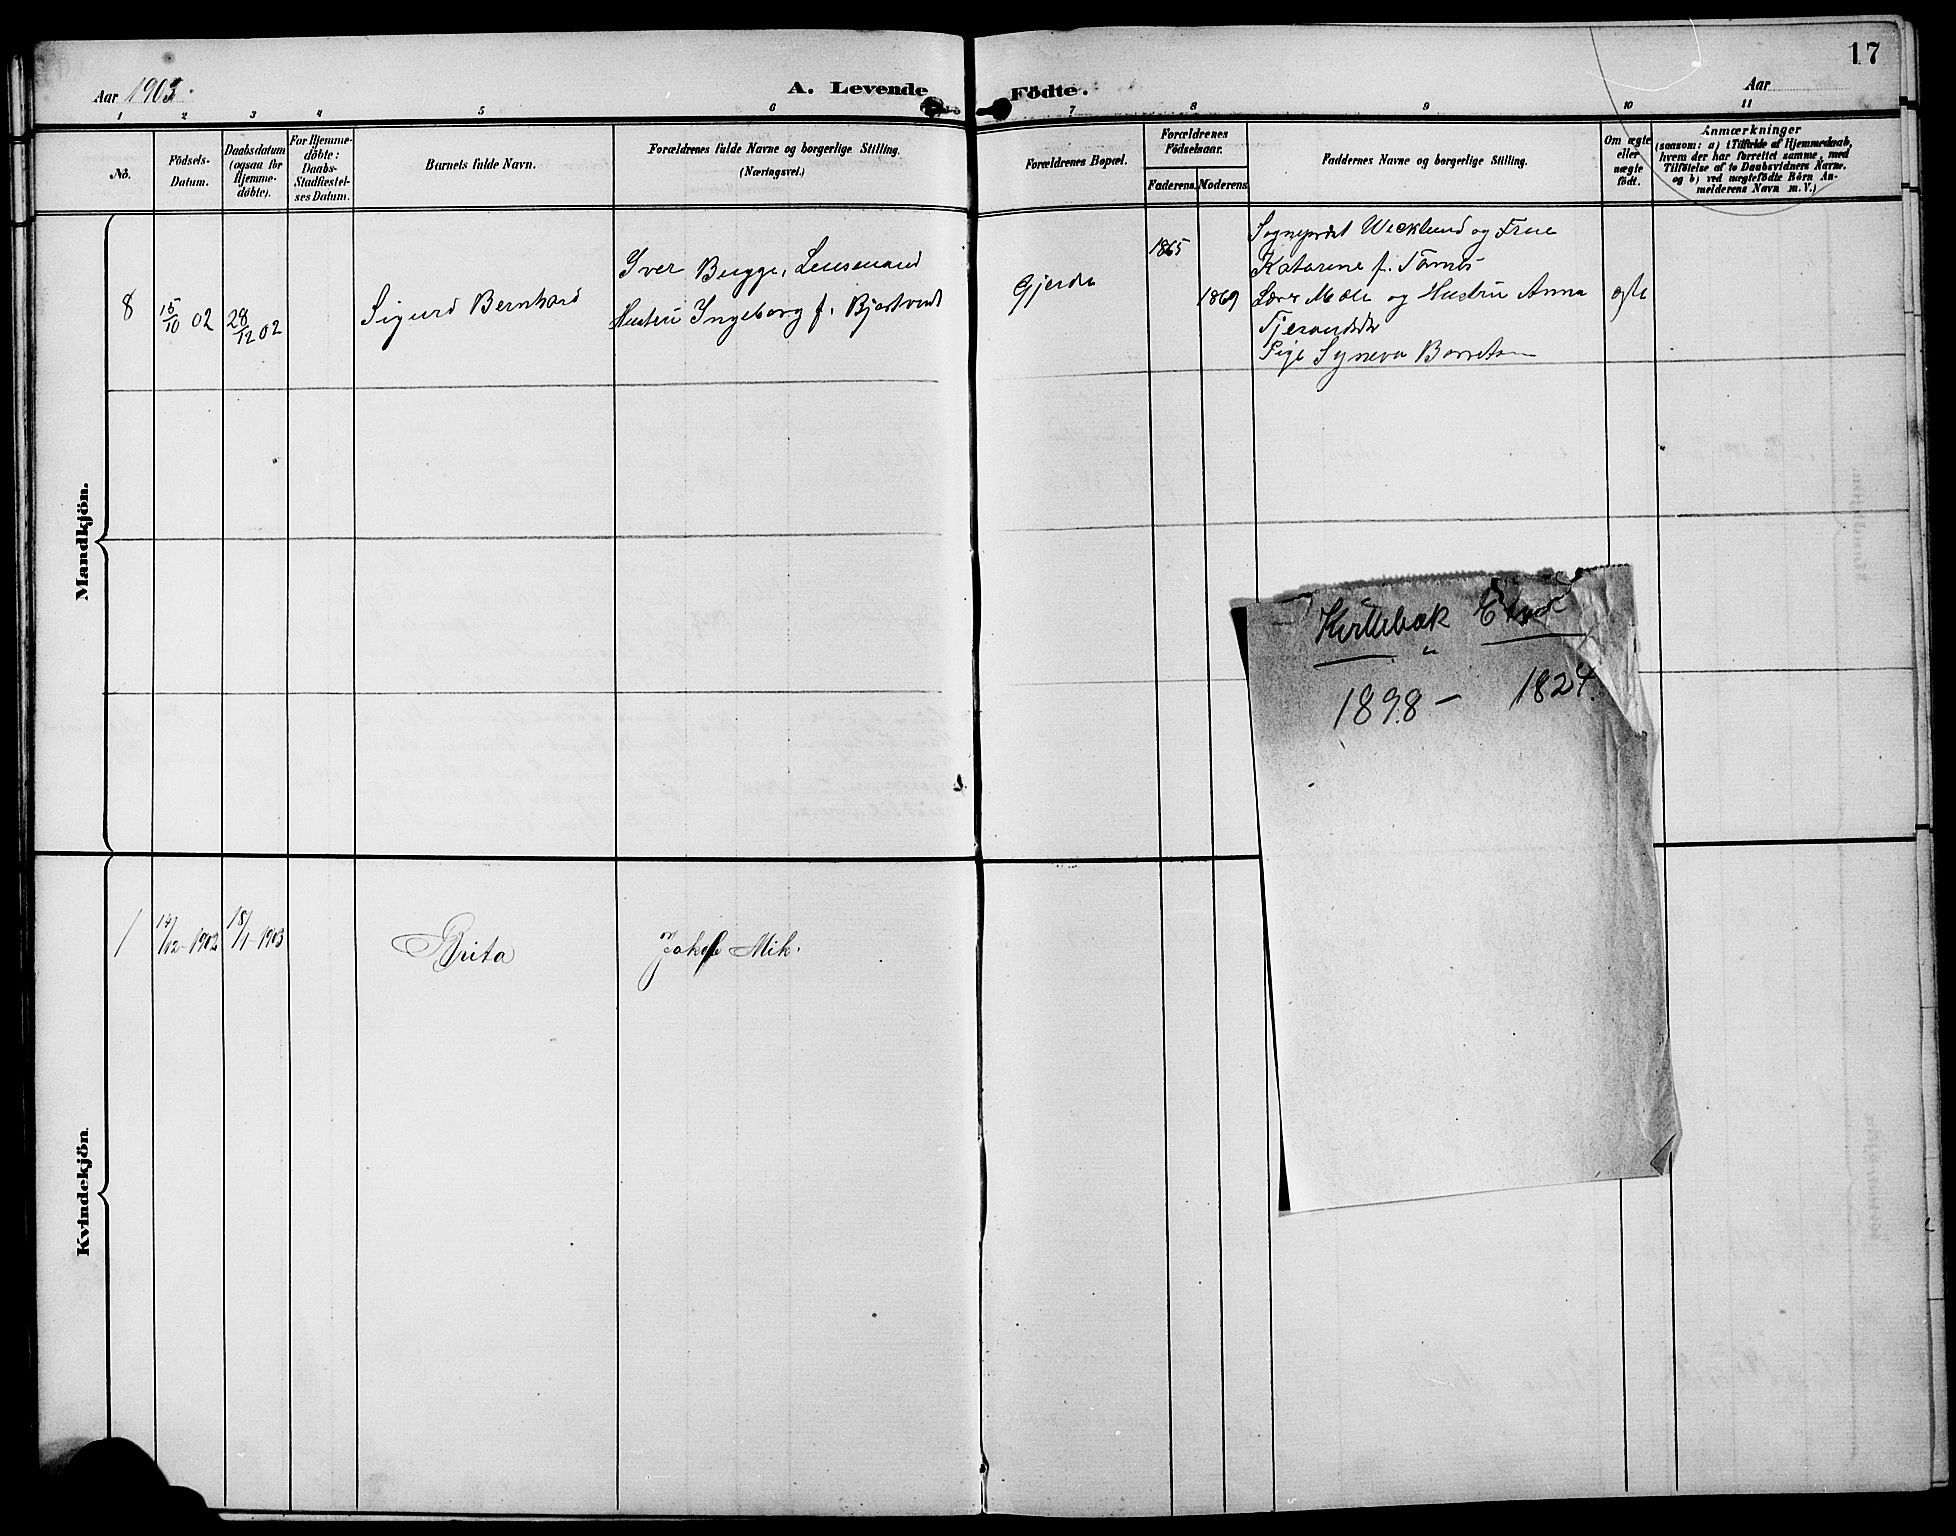 17
Aar 1903.
A. Levende Födte.
Aar
1 2 3 4 5 6 7 8 9 10 11
No.
Födsels-
Datum.
Daabsdatum
(ogsaa for
Hjemme-
döbte).
For Hjemme-
döbte:
Daabs-
Stadfæstel-
ses Datum.
Barnets fulde Navn.
Forældrenes fulde Navne og borgerlige Stilling.
(Næringsvei.)
Forældrenes Bopæl.
Forældrenes
Födselsaar.
Faderens. Moderens.
Faddernes Navne og borgerlige Stilling.
Om ægte
eller
uægte
födt.
Anmærkninger
(saasom: a) i Tilfælde af Hjemmedaab,
hvem der har forrettet samme, med
Tilföielse af to Daabsvidners Navne,
og b) ved uægtefödte Börn An-
melderens Navn m. V.)
Mandkjön.
8
15/10 02
28/12 02
Sigurd Bernhard
Iver Bugge, Lensmand
Hustru Ingeborg f.
Gjerde
1865
1869
Sogneprest Wicklund og Frue
Katarine f.
og Hustru Anna
Pige Syneva
ægte
Etne
1898 - 1824.
Kvindekjön
1
14/12-1902
18/1-1903
Brita
Jakob Mik.